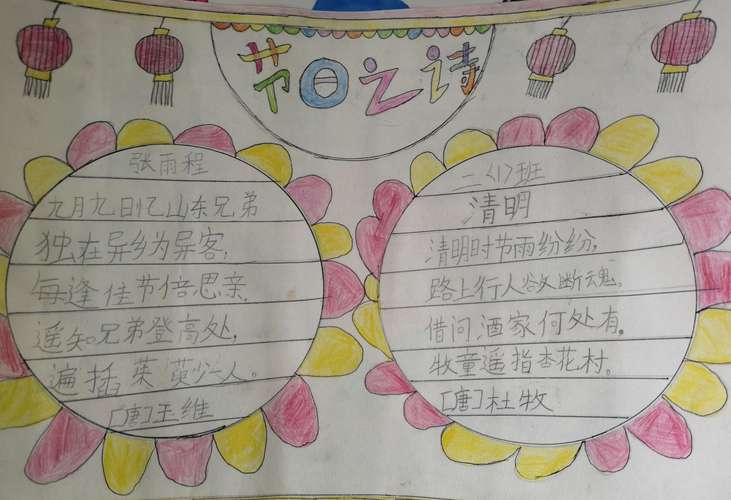 节日之诗
张雨程
九月九日忆山东兄弟
独在异乡为异客,
每逢佳节倍思亲,
遥知兄弟登高处,
遍插茱萸少一人。
[唐]王维
二〈1〉班
清明
清明时节雨纷纷,
路上行人欲断魂。
借问酒家何处有。
牧童遥指杏花村。
[唐]杜牧